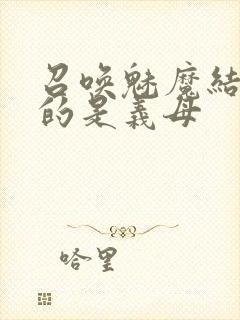 召喚魅魔結
的是義母
哈里